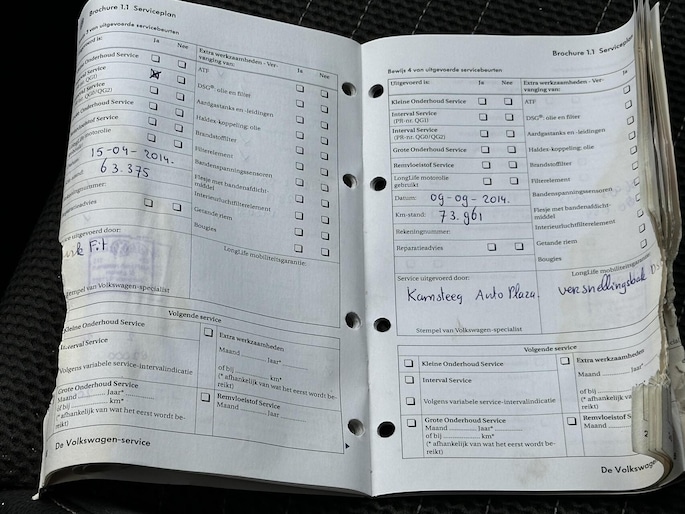 Brochure 1.1 Serviceplan
van uitgevoerde servicebeurten
Ja
Nee
Extra werkzaamheden - Ver-
vanging van:
Ja
Nee
Onderhoud Service
ATF
Service
QG1)
DSG®: olie en filter
Service
QG0/QG2)
Aardgastanks en -leidingen
Onderhoud Service
Haldex-koppeling; olie
Service
Brandstoffilter
motorolie
Filterelement
15-04-2014.
Bandenspanningssensoren
63.375
Flesje met bandenafdicht-
middel
Interieurluchtfilterelement
Getande riem
Bougies
LongLife mobiliteitsgarantie:
uitgevoerd door:
Fit
Stempel van Volkswagen-specialist
Volgende service
Kleine Onderhoud Service
Extra werkzaamheden
Maand Jaar*
Interval Service
Volgens variabele service-intervalindicatie
of bij km*
(* afhankelijk van wat het eerst wordt be-
reikt)
Grote Onderhoud Service
Maand Jaar*
of bij km*
(* afhankelijk van wat het eerst wordt be-
reikt)
Remvloeistof Service
Maand Jaar
De Volkswagen-service
Brochure 1.1 Serviceplan
Bewijs 4 van uitgevoerde servicebeurten
Uitgevoerd is:
Ja
Nee
Extra werkzaamheden - Ver-
vanging van:
Ja
Kleine Onderhoud Service
ATF
Interval Service
(PR-nr. QG1)
DSG®: olie en filter
Interval Service
(PR-nr. QG0/QG2)
Aardgastanks en -leidingen
Grote Onderhoud Service
Haldex-koppeling; olie
Remvloeistof Service
Brandstoffilter
LongLife motorolie
gebruikt
Filterelement
Datum: 09-09-2014.
Bandenspanningssensoren
Km-stand: 73.961
Flesje met bandenafdicht-
middel
Rekeningnummer:
Interieurluchtfilterelement
Reparatieadvies
Getande riem
Bougies
LongLife mobiliteitsgarantie:
Service uitgevoerd door:
Kamsteeg Auto Plaza.
versnellingsbak
Stempel van Volkswagen-specialist
Volgende service
Kleine Onderhoud Service
Extra werkzaamheden
Maand Jaar*
Interval Service
of bij
Volgens variabele service-intervalindicatie
(* afhankelijk van
reikt)
Grote Onderhoud Service
Maand Jaar*
of bij km*
(* afhankelijk van wat het eerst wordt be-
reikt)
Remvloeistof
Maand
De Volkswagen